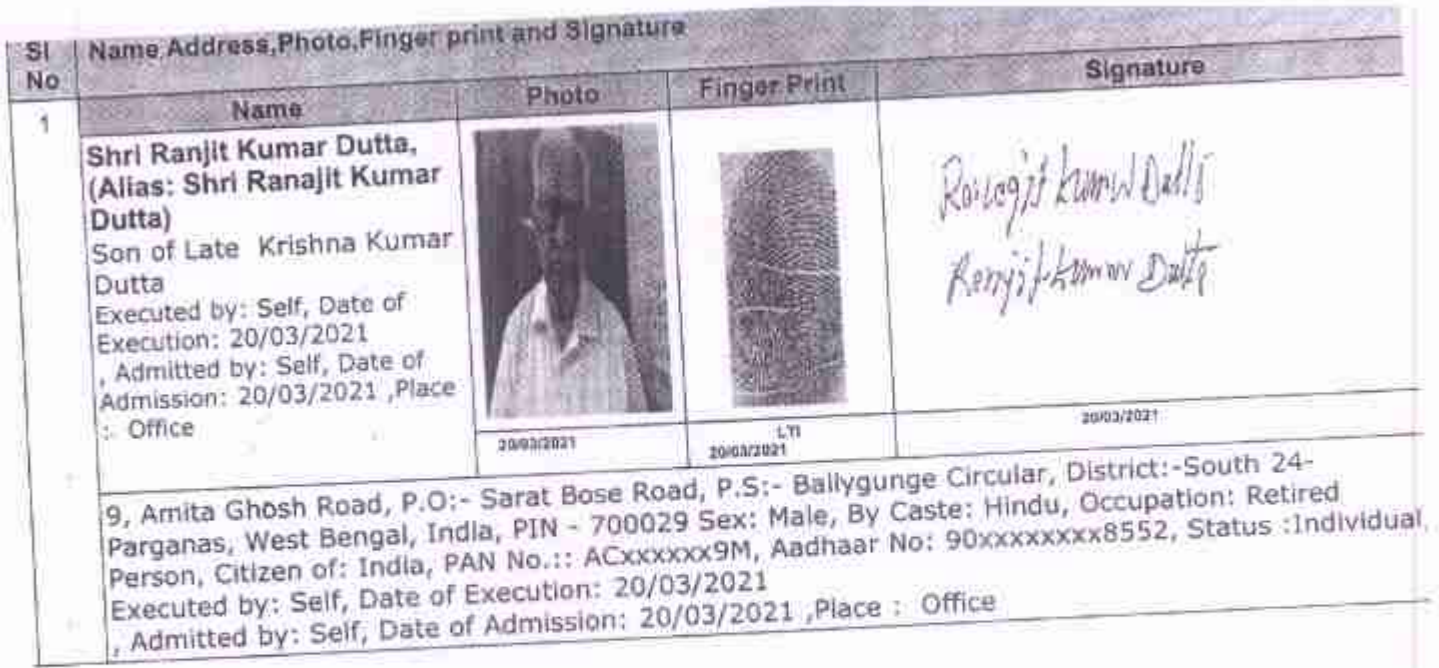 Sl No
Name,Address,Photo,Finger print and Signature
Name
Photo
Finger Print
Signature
1
Shri Ranjit Kumar Dutta,
(Alias: Shri Ranajit Kumar
Dutta)
Son of Late Krishna Kumar
Dutta
Executed by: Self, Date of
Execution: 20/03/2021
, Admitted by: Self, Date of
Admission: 20/03/2021 ,Place
: Office
Ranagjit Kumar Dutta
Ranjit Kumar Dutta
20/03/2021
LTI
20/03/2021
20/03/2021
9, Amita Ghosh Road, P.O:- Sarat Bose Road, P.S:- Ballygunge Circular, District:-South 24-
Parganas, West Bengal, India, PIN - 700029 Sex: Male, By Caste: Hindu, Occupation: Retired
Person, Citizen of: India, PAN No.:: ACxxxxxx9M, Aadhaar No: 90xxxxxxxx8552, Status :Individual,
Executed by: Self, Date of Execution: 20/03/2021
, Admitted by: Self, Date of Admission: 20/03/2021 ,Place : Office